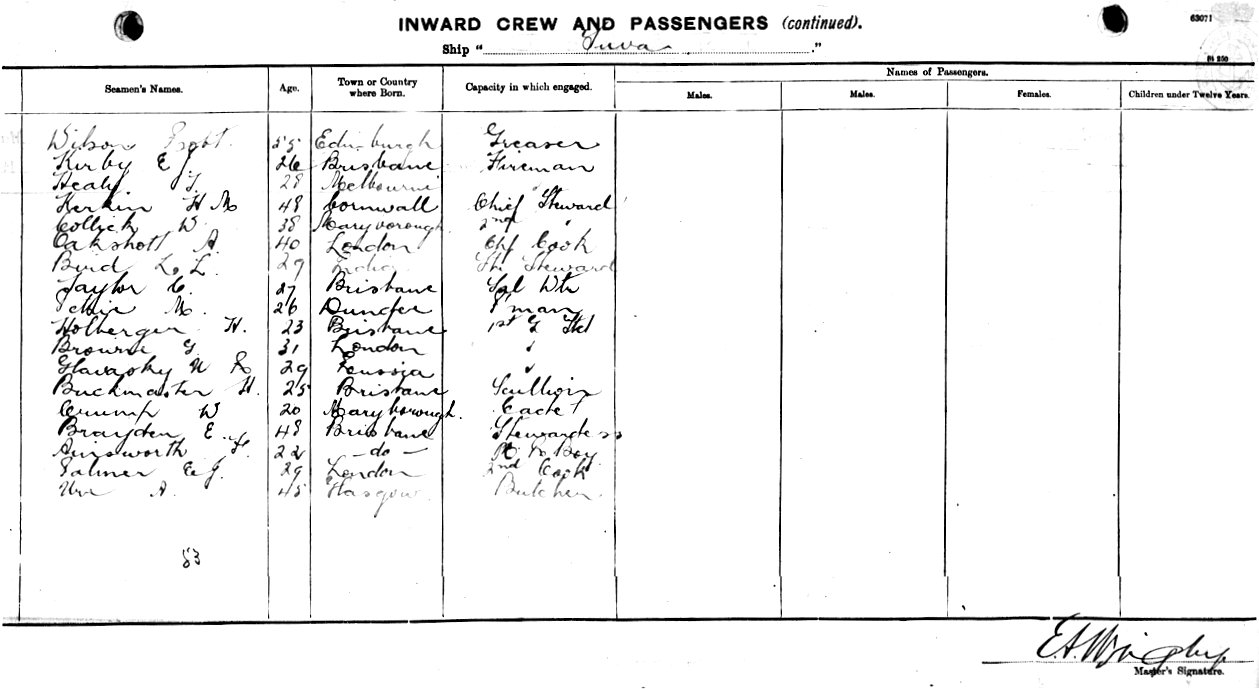 INWARD CREW AND PASSENGERS (continued).
63071
Ship "Suva"
Names of Passengers.
Seamen's Names. Age. Town or Country where Born. Capacity in which engaged. Males. Males. Females. Children under Twelve Years.
Wilson Robt. 55 Edinburgh Greaser
Kirby E J. 26 Brisbane Fireman
Healy T. 28 Melbourne "
Kerkin H M 48 Cornwall Chief Steward
Collick W 38 Maryborough 2nd "
Oakshott A. 40 London Chf Cook
Bird L. L. 29 India Steward
Taylor C. 27 Brisbane
M. 26 Dundee P'man
Holberger H. 23 Brisbane 1st
Browne G. 31 London "
29 Russia "
Buckmaster H. 25 Brisbane
Crump W 20 Maryborough. Cadet
Brayden E. 48 Brisbane Stewardess
Ainsworth 22 - do - Boy
Palmer E J. 29 London 2nd Cook
Ure A. 45 Glasgow Butcher
53
Master's Signature.